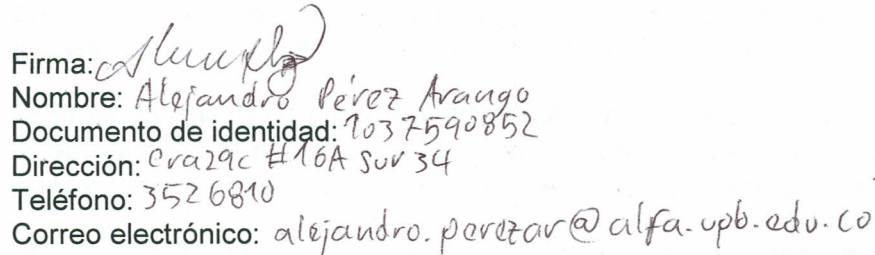 Firma:
Nombre: Alejandro Pérez Arango
Documento de identidad: 1037590852
Dirección: Cra29c #16A Sur 34
Teléfono: 3526810
Correo electrónico: alejandro.perezar@alfa.upb.edu.co